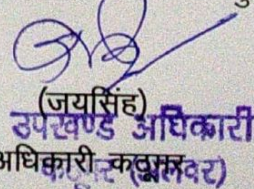 (जयसिंह)
उपखण्ड अधिकारी
अधिकारी कठूमर (अलवर)